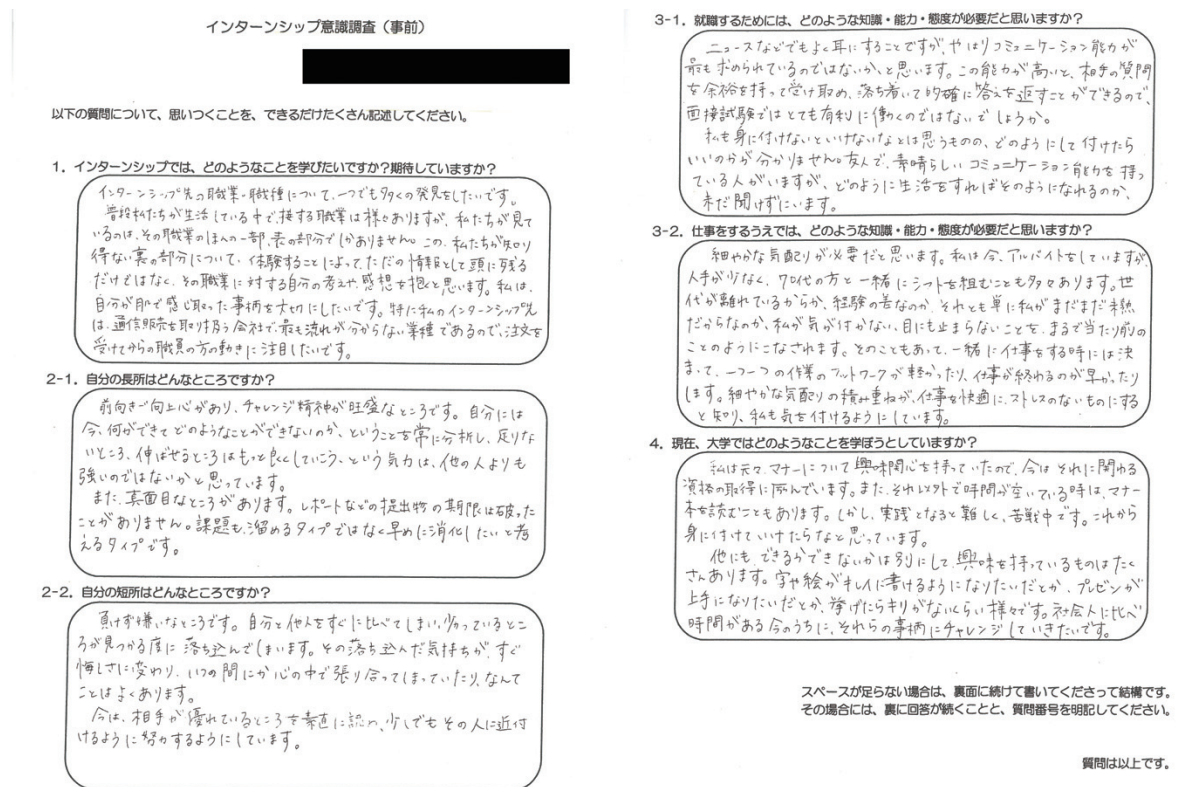 インターンシップ意識調査（事前）
以下の質問について、思いつくことを、できるだけたくさん記述してください。
1．インターンシップでは、どのようなことを学びたいですか？期待していますか？
インターンシップ先の職業・職種について、一つでも多くの発見をしたいです。
普段私たちが生活している中で、接する職業は様々ありますが、私たちが見て
いるのは、その職業のほんの一部、表の部分でしかありません。この、私たちが知り
得ない裏の部分について、体験することによって、ただの情報として頭に残る
だけではなく、その職業に対する自分の考えや、感想を抱くと思います。私は、
自分が肌で感じ取った事柄を大切にしたいです。特に私のインターンシップ先
は、通信販売を取り扱う会社で、最も流れが分からない業種であるので、注文を
受けてからの職員の方の動きに注目したいです。
2-1．自分の長所はどんなところですか？
前向きで向上心があり、チャレンジ精神が旺盛なところです。自分には
今、何ができてどのようなことができないのか、ということを常に分析し、足りな
いところ、伸ばせるところはもっと良くしていこう、という気力は、他の人よりも
強いのではないかと思っています。
また、真面目なところがあります。レポートなどの提出物の期限は破った
ことがありません。課題も、溜めるタイプではなく早めに消化したいと考
えるタイプです。
2-2．自分の短所はどんなところですか？
負けず嫌いなところです。自分と他人をすぐに比べてしまい、劣っているとこ
ろが見つかる度に落ち込んでしまいます。その落ち込んだ気持ちが、すぐ
悔しさに変わり、いつの間にか心の中で張り合ってしまっていたり、なんて
ことはよくあります。
今は、相手が優れているところを素直に認め、少しでもその人に近付
けるように努力するようにしています。
3-1．就職するためには、どのような知識・能力・態度が必要だと思いますか？
ニュースなどでもよく耳にすることですが、やはりコミュニケーション能力が
最も求められているのではないか、と思います。この能力が高いと、相手の質問
を余裕を持って受け取め、落ち着いて的確に答えを返すことができるので、
面接試験ではとても有利に働くのではないでしょうか。
私も身に付けないといけないなとは思うものの、どのようにして付けたら
いいのかが分かりません。友人で、素晴らしいコミュニケーション能力を持っ
ている人がいますが、どのように生活をすればそのようになれるのか、
未だ聞けずにいます。
3-2．仕事をするうえでは、どのような知識・能力・態度が必要だと思いますか？
細やかな気配りが必要だと思います。私は今、アルバイトをしていますが、
人手が少なく、70代の方と一緒にシフトを組むことも多々あります。世
代が離れているからか、経験の差なのか、それとも単に私がまだまだ未熟
だからなのか、私が気が付かない、目にも止まらないことを、まるで当たり前の
ことのようにこなされます。そのこともあって、一緒に仕事をする時には決
まって、一つ一つの作業のフットワークが軽かったり、仕事が終わるのが早かったり
します。細やかな気配りの積み重ねが、仕事を快適に、ストレスのないものにする
と知り、私も気を付けるようにしています。
4．現在、大学ではどのようなことを学ぼうとしていますか？
私は元々、マナーについて興味関心を持っていたので、今はそれに関わる
資格の取得に励んでいます。また、それ以外で時間が空いている時は、マナー
本を読むこともあります。しかし、実践となると難しく、苦戦中です。これから
身に付けていけたらなと思っています。
他にも、できるかできないかは別にして、興味を持っているものはたく
さんあります。字や絵がキレイに書けるようになりたいだとか、プレゼンが
上手になりたいだとか、挙げたらキリがないくらい様々です。社会人に比べ
時間がある今のうちに、それらの事柄にチャレンジしていきたいです。
スペースが足らない場合は、裏面に続けて書いてくださって結構です。
その場合には、裏に回答が続くことと、質問番号を明記してください。
質問は以上です。